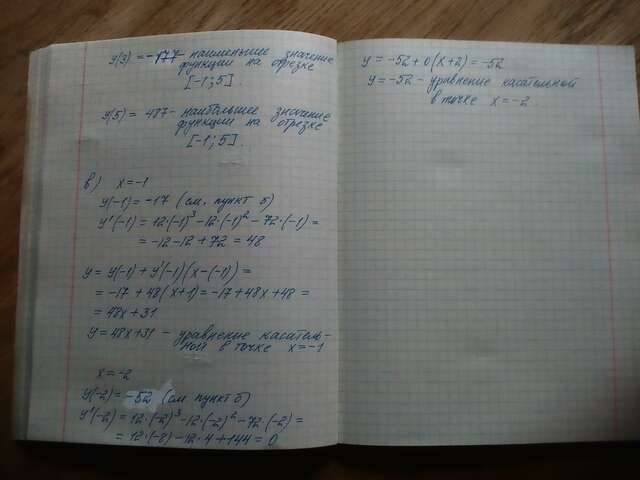 y(3) = -177 - наименьшее значение
функции на отрезке
[-1; 5].
y(5) = 487 - наибольшее значение
функции на отрезке
[-1; 5].
в) x = -1
y(-1) = -17 (см. пункт б)
y'(-1) = 12·(-1)³ - 12·(-1)² - 72·(-1) =
= -12 - 12 + 72 = 48
y = y(-1) + y'(-1)(x - (-1)) =
= -17 + 48(x+1) = -17 + 48x + 48 =
= 48x + 31
y = 48x + 31 - уравнение касатель-
ной в точке x = -1
x = -2
y(-2) = -52 (см пункт б)
y'(-2) = 12·(-2)³ - 12·(-2)² - 72(-2) =
= 12·(-8) - 12·4 + 144 = 0
y = -52 + 0(x+2) = -52
y = -52 - уравнение касательной
в точке x = -2.